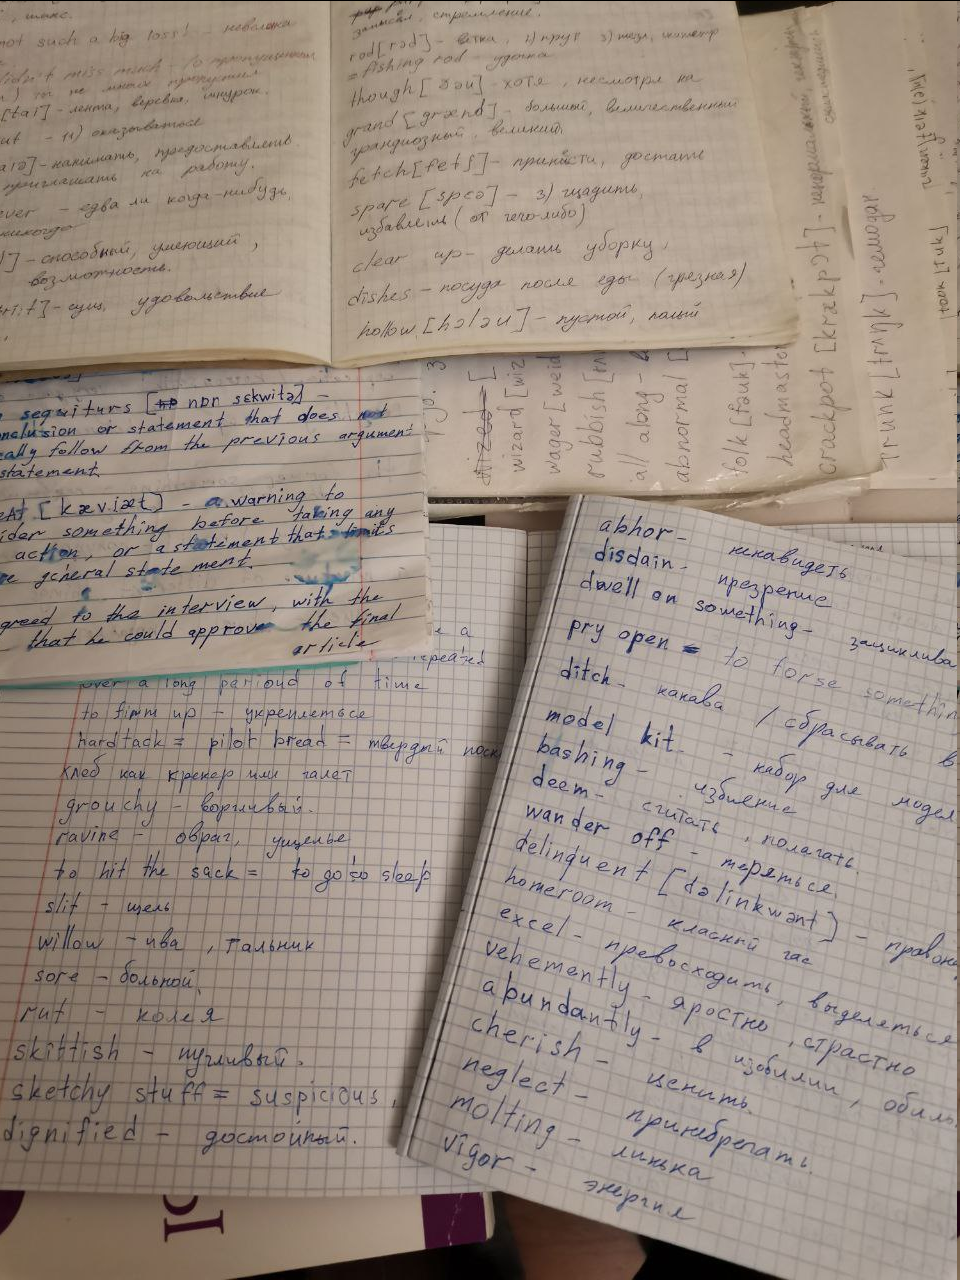 not such a big loss! - невелика
didn't miss much -
[tai] - лента, веревка, шнурок.
- 11) оказываться
- нанимать, предоставлять.
приглашать на работу.
ever - едва ли когда-нибудь,
никогда
- способный, умеющий,
возможность.
- сущ. удовольствие
стремление.
rod[rɒd] - ветка,
= fishing rod - удочка
though [ðəu] - хотя, несмотря на
grand [grænd] - большой, величественный
грандиозный, великий.
fetch [fetʃ] - принести, достать
spare [speə] - 3) щадить,
избавлять (от чего-либо)
clear up - делать уборку,
dishes - посуда после еды (грязная)
hollow [hɔləu] - пустой, полый
wizard [wiz
wager [weid
rubbish [
all along -
abnormal [
folk [fəuk] -
headmaster
crackpot [krækpɔt] - ненормальный,
сумасшедший
trunk [trʌŋk] - чемодан
took [tuk]
sequiturs [nɒn sɛkwitə] -
onclusion or statement that does not
cally follow from the previous argument
statement.
eat [kæviæt] - a warning to
ider something before taking any
action, or a statement that limits
re general statement.
greed to the interview, with the
that he could approve the final
article
a
repeated
over a long perioud of time
to firm up - укрепляться
hardtack = pilot bread = твердый поск
хлеб как крекер или галет
grouchy - ворчливый.
ravine - овраг, ущелье
to hit the sack = to go to sleep
slit - щель
willow - ива, тальник
sore - больной,
rut - колея
skittish - пугливый.
sketchy stuff = suspicious,
dignified - достойный.
abhor - ненавидеть
disdain - презрение
dwell on something - зациклива
pry open = to forse somethin
ditch - канава / сбрасывать в
model kit - набор для модел
bashing - избиение
deem - считать, полагать.
wander off - теряться.
delinquent [dəlinkwənt] - правон
homeroom - класный час
excel - превосходить, выделяться
vehemently - яростно, страстно
abundantly - в изобилии, обиль
cherish - ценить.
neglect - принебрегать.
molting - линька
vigor - энергия